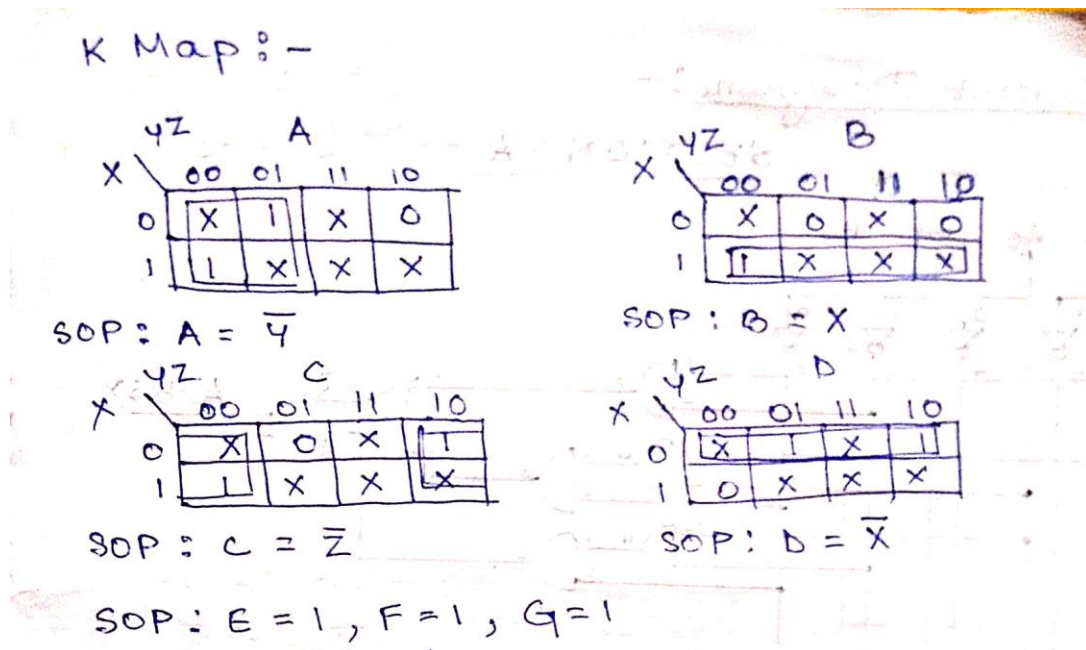 K Map :-
YZ A
X 00 01 11 10
0 X 1 X 0
1 1 X X X
SOP : A = Y̅
YZ B
X 00 01 11 10
0 X 0 X 0
1 1 X X X
SOP : B = X
YZ C
X 00 01 11 10
0 X 0 X 1
1 1 X X X
SOP : C = Z̅
YZ D
X 00 01 11 10
0 X 1 X 1
1 0 X X X
SOP : D = X̅
SOP : E = 1, F = 1, G = 1